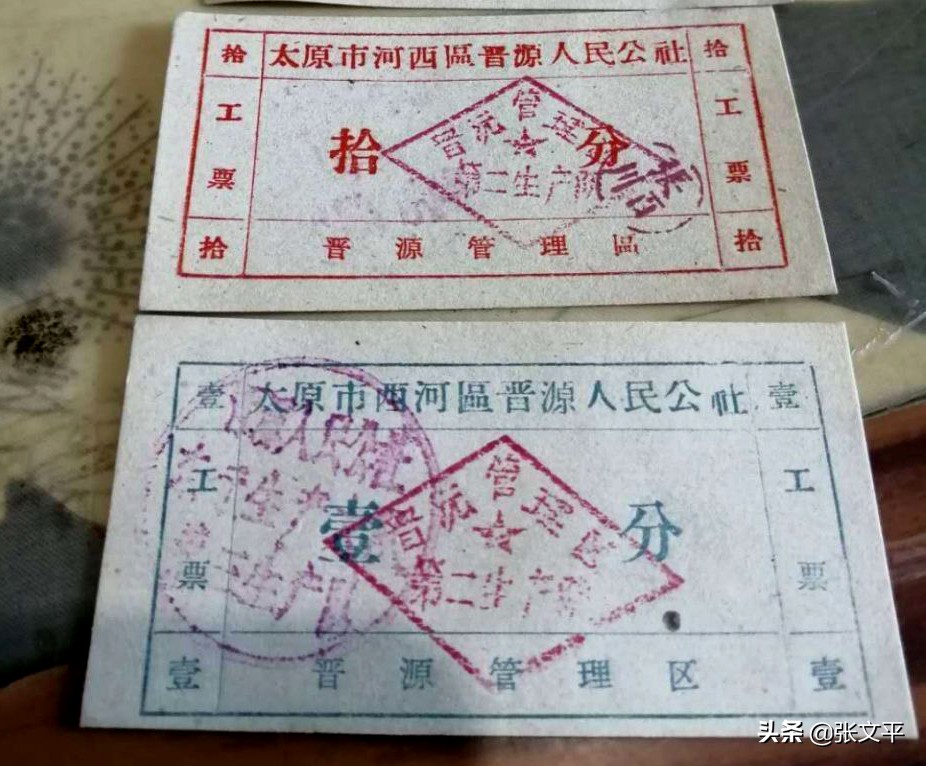 拾 太原市河西區晋源人民公社 拾
工 工
票 票
拾 分
晋源管理
第二生产队
張
拾 晋源管理區 拾
壹 太原市西河區晋源人民公社 壹
工 工
票 票
壹 分
晋源管理区
第二生产
壹 晋源管理区 壹
头条 @张文平